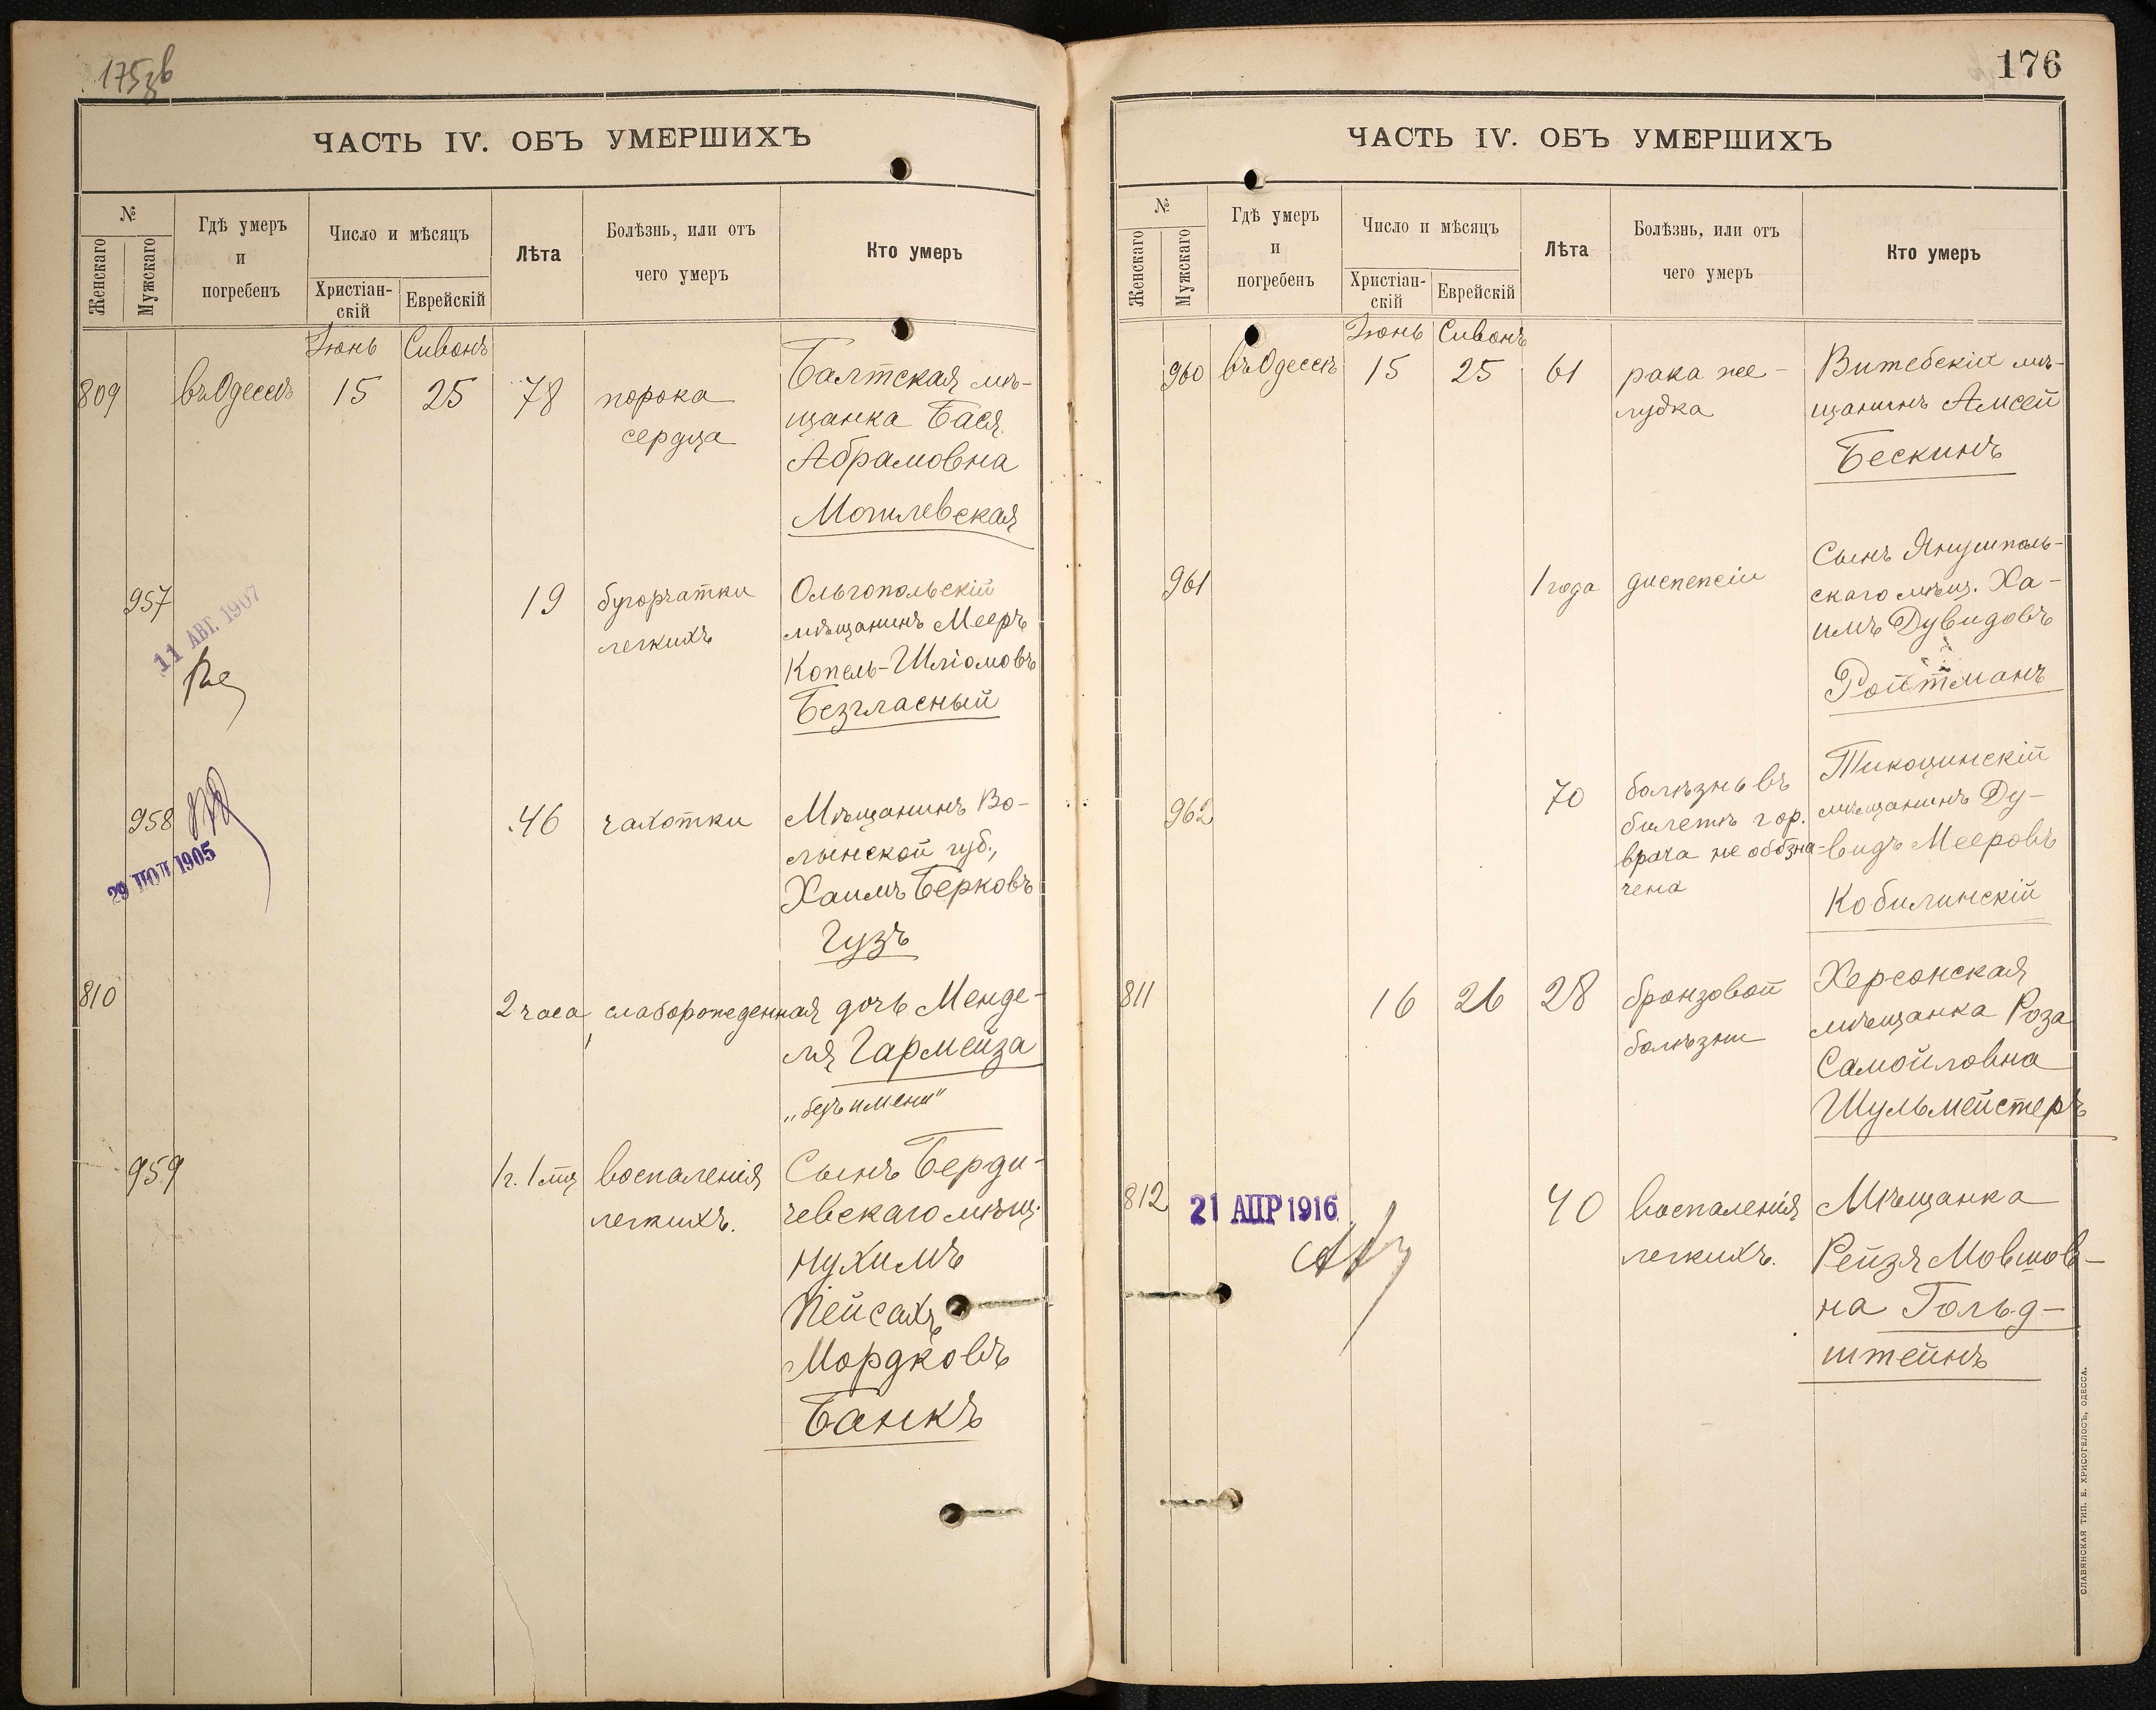 175 об
ЧАСТЬ IV. ОБЪ УМЕРШИХЪ
№
Женскаго
Мужскаго
Гдѣ умеръ
и
погребенъ
Число и мѣсяцъ
Христіан-
скій
Еврейскій
Лѣта
Болѣзнь, или отъ
чего умеръ
Кто умеръ
Іюнь Сиванъ
809 въ Одессѣ 15 25 78 порока
сердца
Балтская мѣ-
щанка Бася
Абрамовна
Могилевская
957 19 бугорчатки
легкихъ
Ольгопольскій
мѣщанинъ Мееръ
Копель-Шліомовъ
Безгласный
11 АВГ. 1907
958 46 чахотки
Мѣщанинъ Во-
лынской губ.,
Хаимъ Берковъ
Гузъ
29 ИЮЛ 1905
810 2 часа слаборожденная дочь Менде-
ля Гармейза
„безъ имени"
959 1 г. 1 мц воспаленія
легкихъ.
Сынъ Берди-
чевскаго мѣщ.
Нухимъ
Пейсахъ
Мордковъ
Банкъ
176
ЧАСТЬ IV. ОБЪ УМЕРШИХЪ
№
Женскаго
Мужскаго
Гдѣ умеръ
и
погребенъ
Число и мѣсяцъ
Христіан-
скій
Еврейскій
Лѣта
Болѣзнь, или отъ
чего умеръ
Кто умеръ
Іюнь Сиванъ
960 въ Одессѣ 15 25 61 рака же-
лудка
Витебскій мѣ-
щанинъ Амсей
Бескинъ
961 1 года диспепсіи
Сынъ Янушполь-
скаго мѣщ. Ха-
имъ Дувидовъ
Ройтманъ
962 70 болѣзнь въ
билетѣ гор.
врача не обозна-
чена
Тикоцинскій
мѣщанинъ Ду-
видъ Мееровъ
Кобилинскій
811 16 26 28 бронзовой
болѣзни
Херсонская
мѣщанка Роза
Самойловна
Шульмейстеръ
812 40 воспаленія
легкихъ.
Мѣщанка
Рейзя Мовшов-
на Гольд-
штейнъ
21 АПР 1916
СЛАВЯНСКАЯ ТИП. Е. ХРИСОГЕЛОСЪ, ОДЕССА.